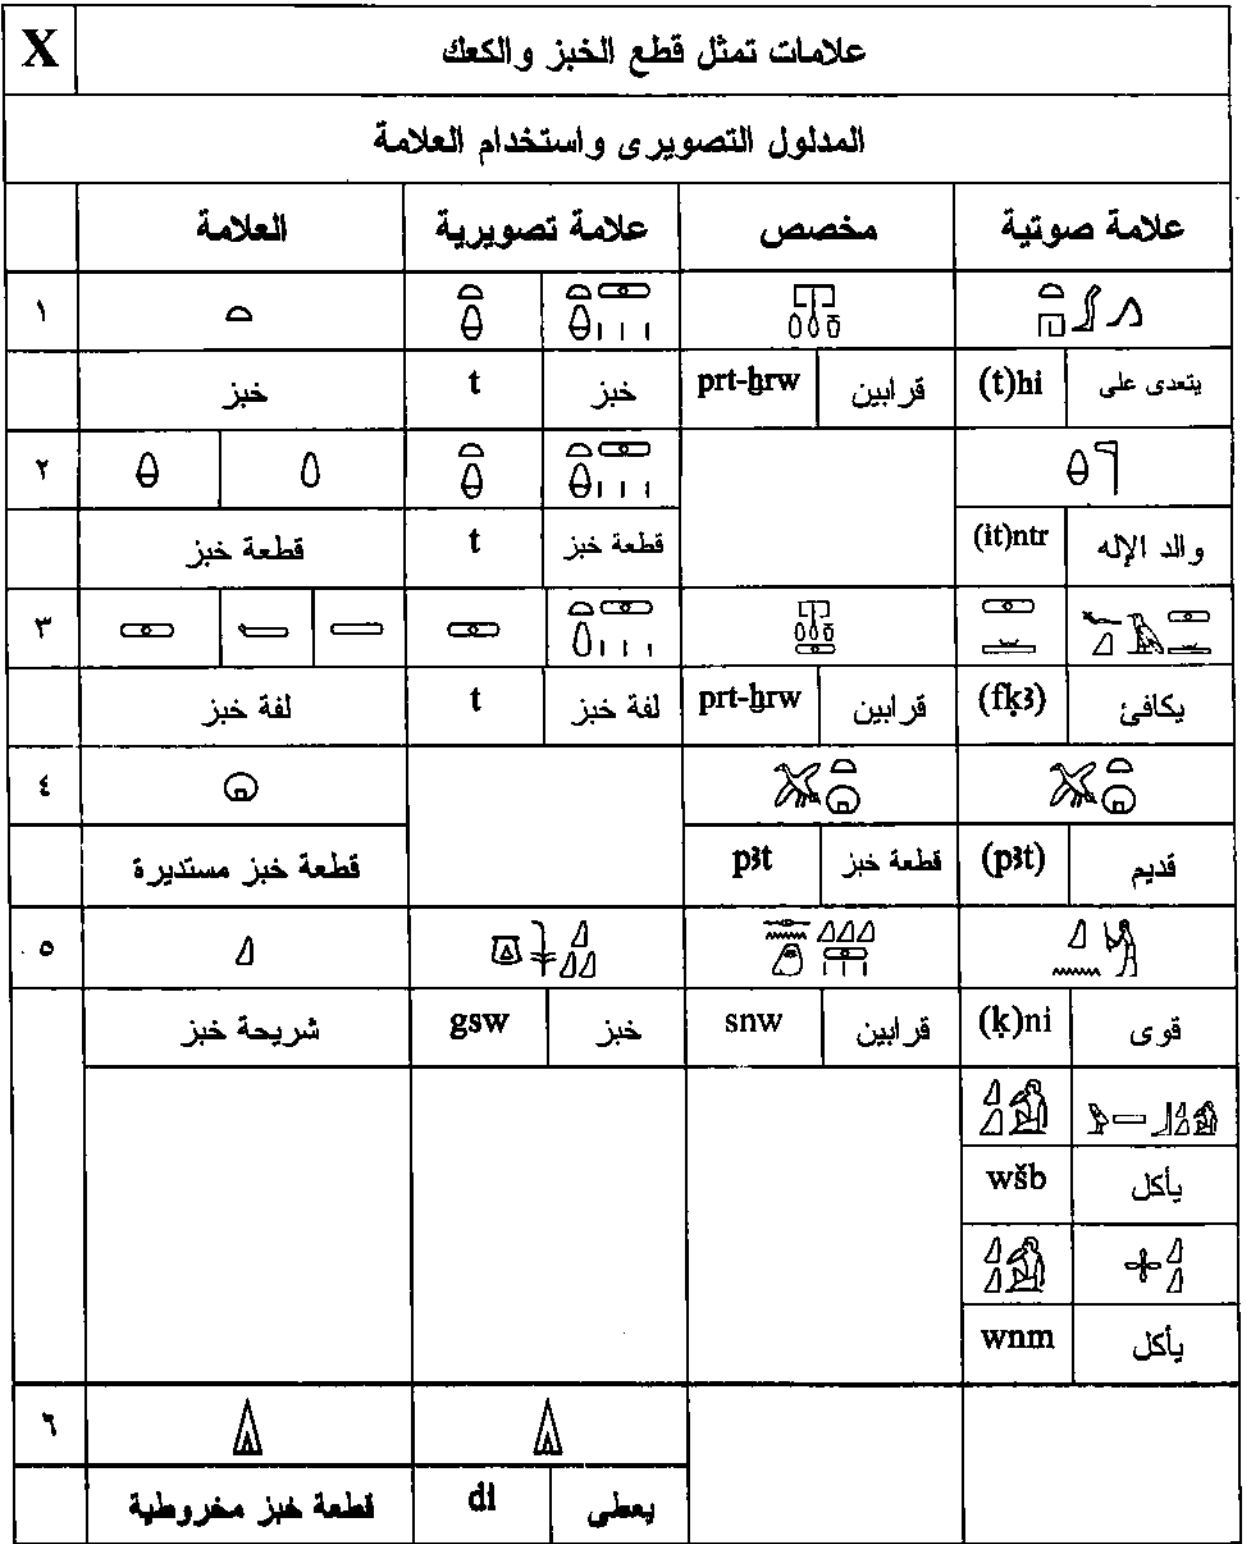 X علامات تمثل قطع الخبز والكعك
المدلول التصويرى واستخدام العلامة
العلامة علامة تصويرية مخصص علامة صوتية
١
خبز t خبز prt-ḫrw قرابين (t)hi يتعدى على
٢
قطعة خبز t قطعة خبز (it)ntr والد الإله
٣
لفة خبز t لفة خبز prt-ḫrw قرابين (fḳꜣ) يكافئ
٤
قطعة خبز مستديرة pꜣt قطعة خبز (pꜣt) قديم
٥
شريحة خبز gsw خبز snw قرابين (ḳ)ni قوى
wšb يأكل
wnm يأكل
٦
قطعة خبز مخروطية di يعطى